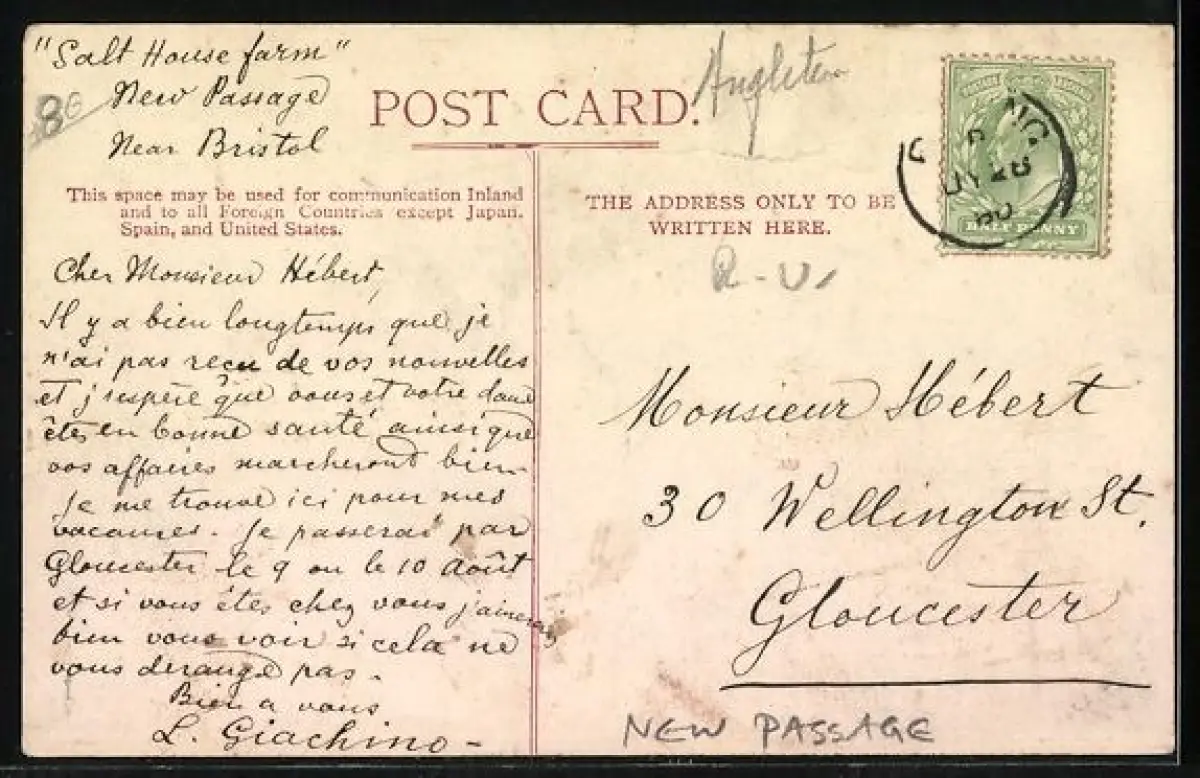 "Salt House farm"
New Passage
Near Bristol
80
POST CARD.
Angleterre
This space may be used for communication Inland
and to all Foreign Countries except Japan,
Spain, and United States.
THE ADDRESS ONLY TO BE
WRITTEN HERE.
HALF PENNY
JY 28
Cher Monsieur Hébert,
Il y a bien longtemps que je
n'ai pas reçu de vos nouvelles
et j'espère que vous et votre dame
êtes en bonne santé ainsi que
vos affaires marcheront bien
Je me trouve ici pour mes
vacances. Je passerai par
Gloucester le 9 ou le 10 Août
et si vous êtes chez vous j'aimerais
bien vous voir si cela ne
vous derange pas.
Bien a vous
L. Giachino -
Monsieur Hébert
30 Wellington St.
Gloucester
NEW PASSAGE